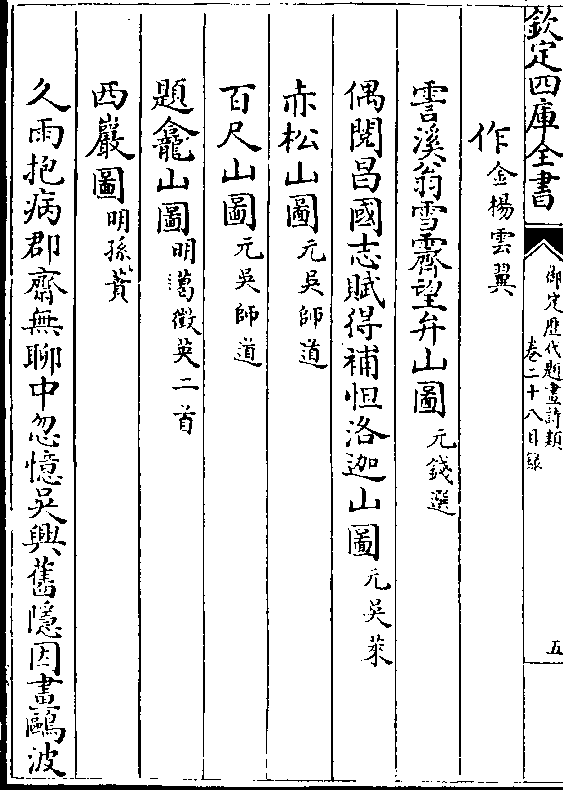 欽定四庫全書
御定歷代題畫詩類
卷二十八目錄
五
作金楊雲翼
霅溪翁雪霽望弁山圖元錢選
偶閱昌國志賦得補怛洛迦山圖元吳萊
赤松山圖元吳師道
百尺山圖元吳師道
題龕山圖明葛徵英二首
西巖圖明孫蕡
久雨抱病郡齋無聊中忽憶吳興舊隱因畫鷗波